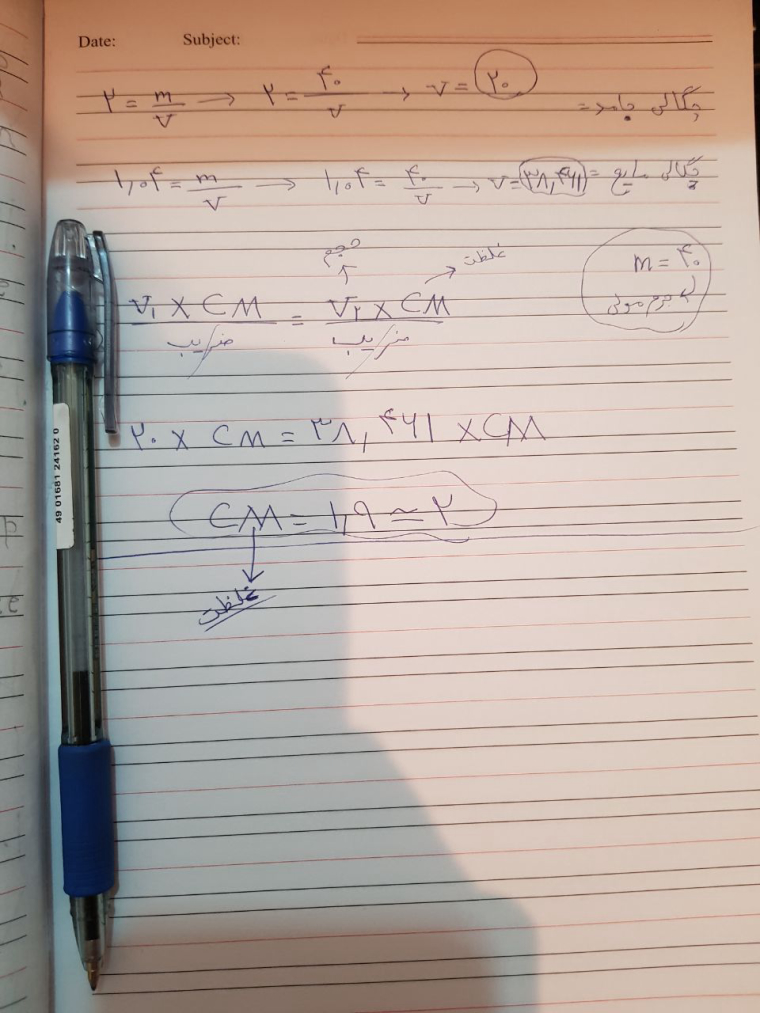 Date: Subject:
۲ = m/V → ۲ = ۴۰/V → V = ۲۰ چگالی جامد=
۱,۰۴ = m/V → ۱,۰۴ = ۴۰/V → V = ۳۸,۴۶۱ = چگالی مایع
m = ۴۰
جرم مولی
حجم غلظت
V۱ × CM / ضریب = V۲ × CM / ضریب
۲۰ × CM = ۳۸,۴۶۱ × CM
CM = ۱,۹ ≃ ۲
غلظت
49 01681 24162 0